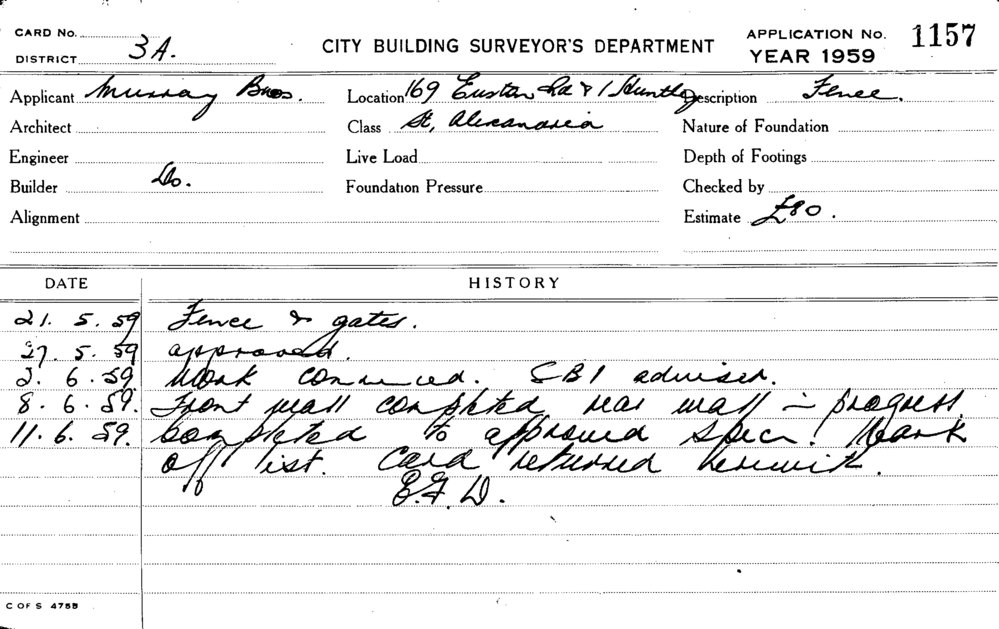 CARD No.
DISTRICT 3A.
CITY BUILDING SURVEYOR'S DEPARTMENT
APPLICATION No. 1157
YEAR 1959
Applicant Murray Bros. Location 169 Euston Rd & 1 Huntley Description Fence.
Architect Class St, Alexandria Nature of Foundation
Engineer Live Load Depth of Footings
Builder Do. Foundation Pressure Checked by
Alignment Estimate £80.
DATE HISTORY
21. 5. 59 Fence & gates.
27. 5. 59 approved.
2. 6. 59. Work commenced. SBI advised.
8. 6. 59. Front wall completed rear wall in progress
11. 6. 59. Completed to approved specn. Mark
off list. Card returned herewith.
E.F.D.
C OF S 475B